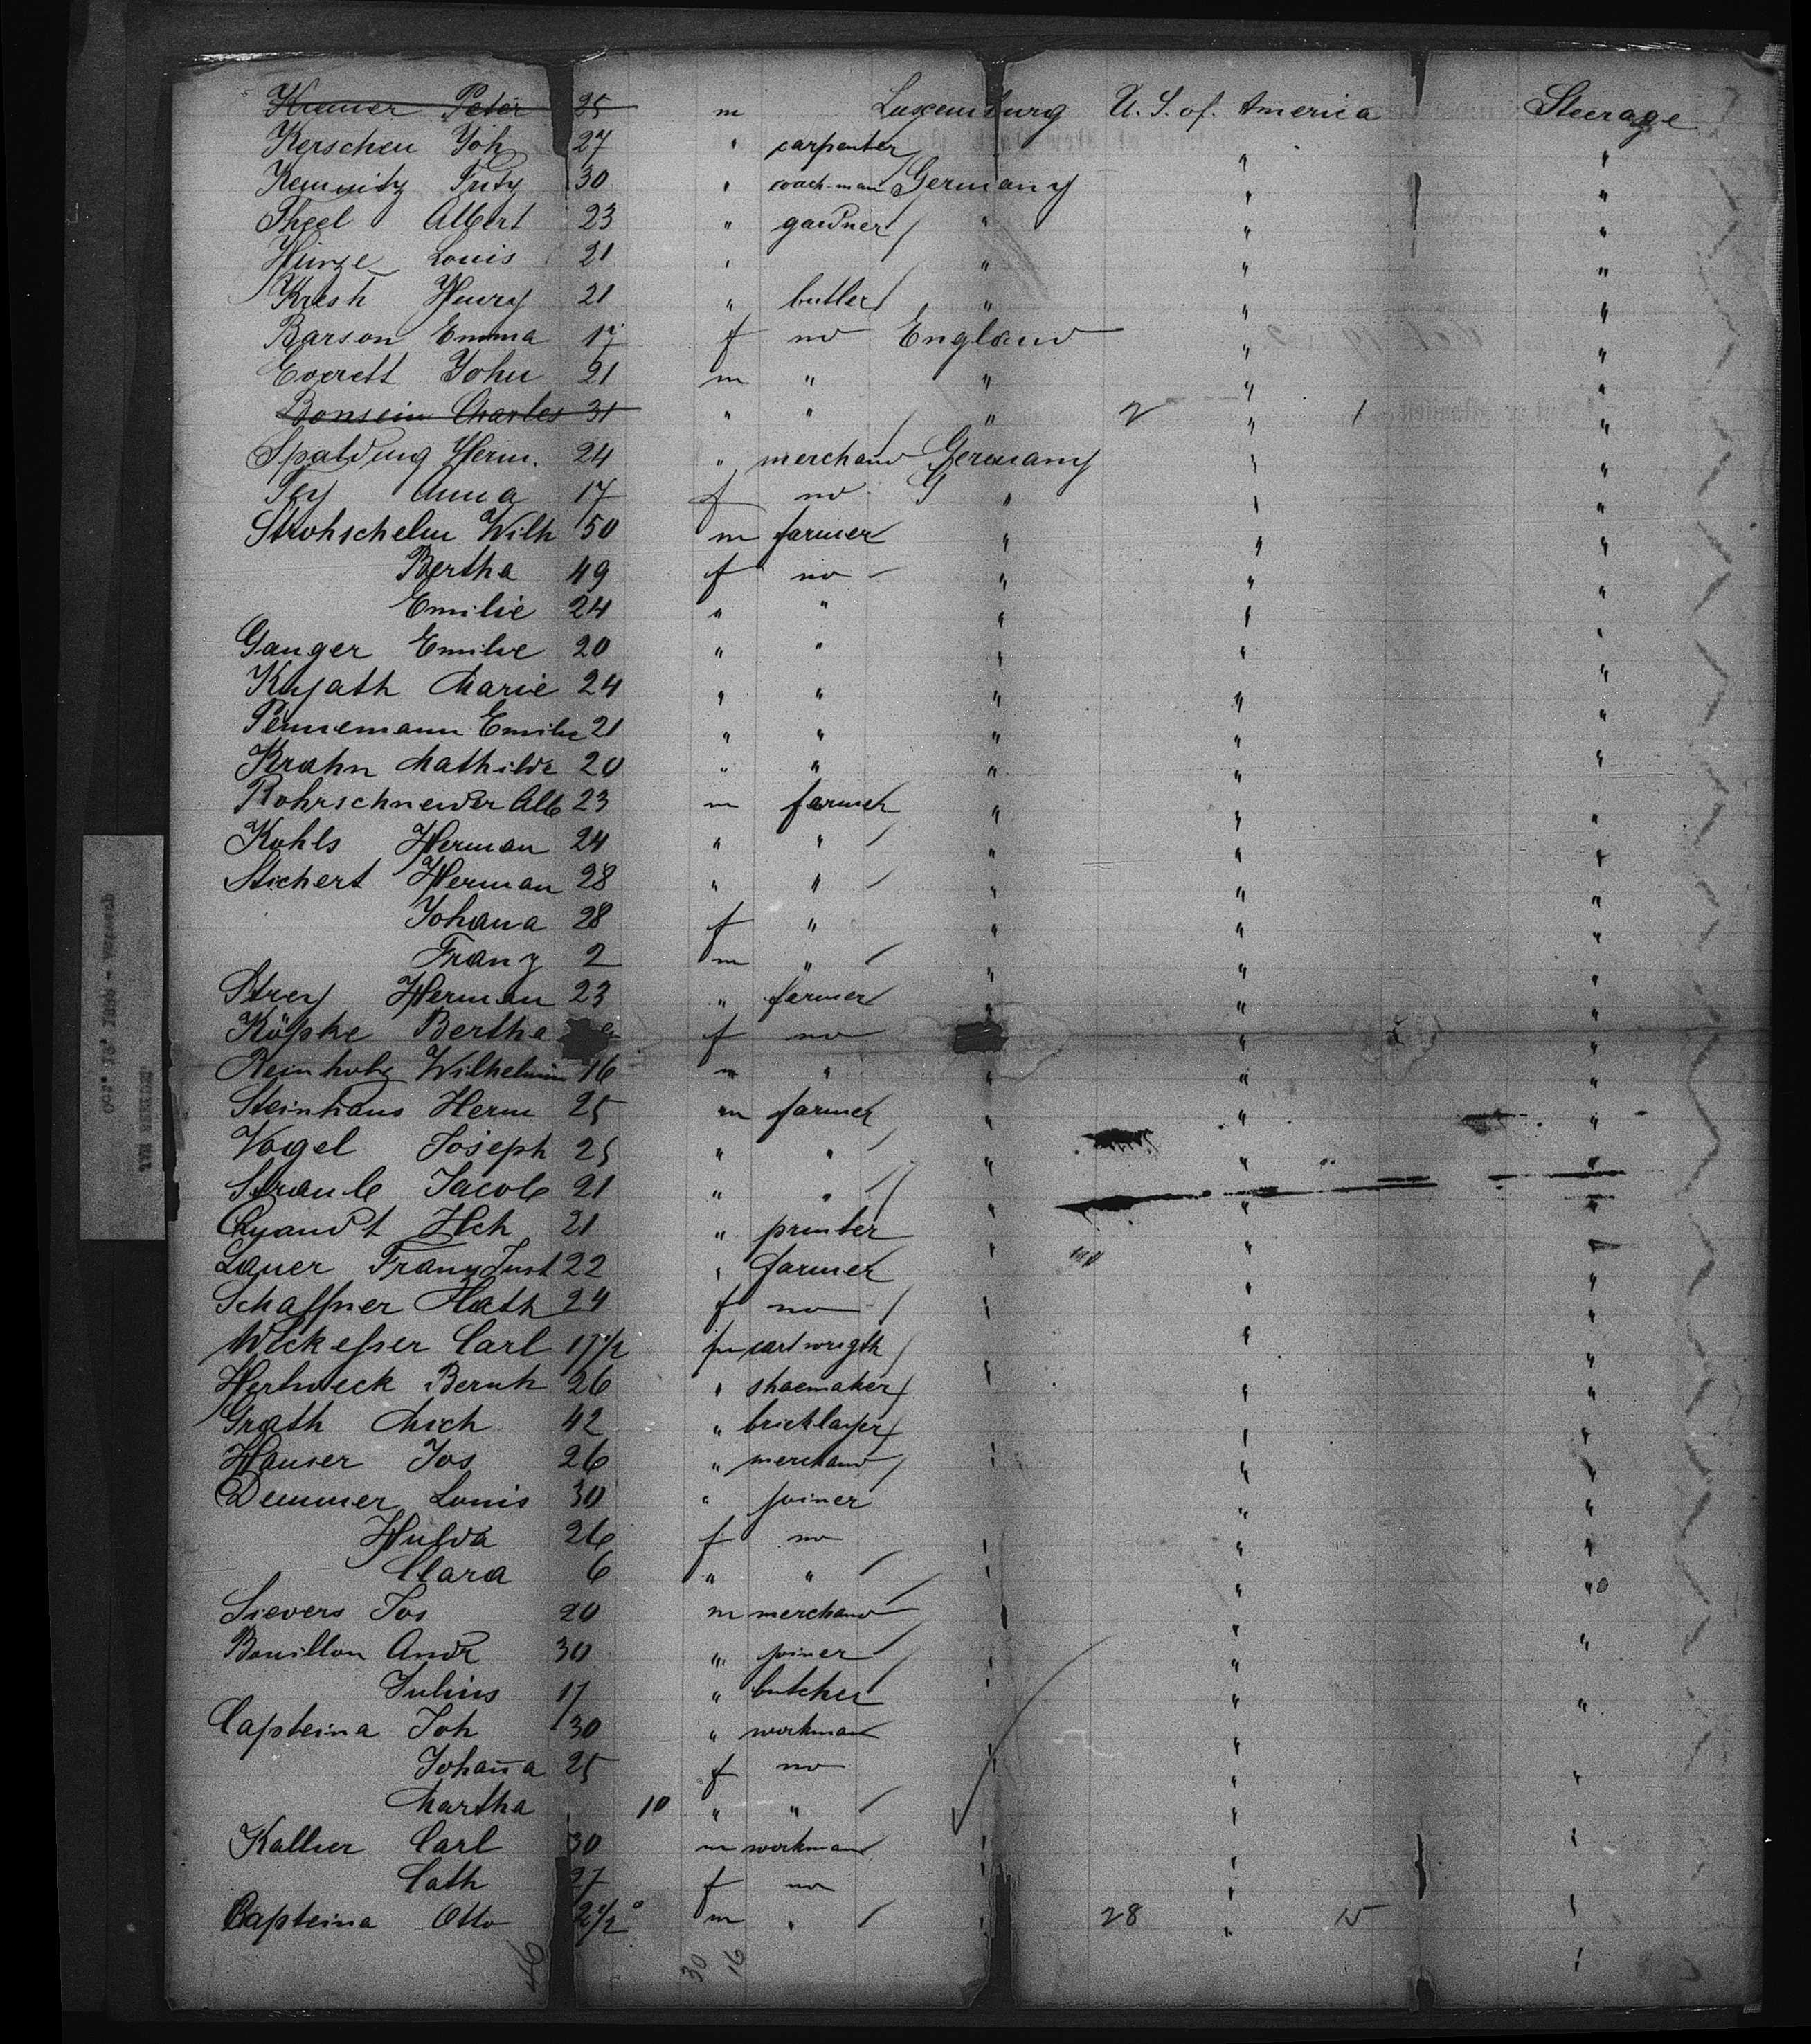 Kramer Peter 25 m Luxemburg U. S. of. America Steerage
Kerschen Joh 27 " carpenter " "
Kemnitz Fritz 30 " coach-man Germany " "
Theel Albert 23 " gardner " " "
Hinze Louis 21 " " " "
Kresh Henry 21 " butler " " "
Barson Emma 17 f no England " "
Everett John 21 m " " " "
Bonsein Charles 31 " " " 2 " 1 "
Spalding Herm. 24 " merchand Germany " "
Anna 17 f no G " " "
Strohschelm Wilh 50 m farmer " " "
Bertha 49 f no " " "
Emilie 24 " " " " "
Ganger Emilie 20 " " " " "
Knjath Marie 24 " " " " "
Pennemann Emilie 21 " " " " "
Krahn Mathilde 20 " " " " "
Rohrschneider Alb 23 m farmer " " "
Kohls Herman 24 " " " " "
Stichert Herman 28 " " " " "
Johana 28 f " " " "
Franz 2 m " " " "
Strey Herman 23 " farmer " " "
Köpke Bertha f no " "
Reinholz Wilhelmin 16 " " " " "
Steinhaus Herm 25 m farmer " " "
Vogel Joseph 25 " " " " "
Straub Jacob 21 " " " " "
Quandt Hch 21 " printer " " "
Lauer Franz Just 22 " farmer " " "
Schaffner Kath 24 f no " " "
Wickesser Carl 17 1/2 m cartwrigth " "
Hertweck Bernh 26 " shoemaker " " "
Grath Mich 42 " bricklayer " "
Hauser Jos 26 " merchand " " "
Demmer Louis 30 " joiner " "
Hulda 26 f no " " "
Clara 6 " " " " "
Sievers Jos 20 m merchand "
Bouillon Andr 30 " joiner " " "
Julius 17 " butcher " " "
Capteina Joh 30 " workman "
Johan̄a 25 f no " " "
Martha 10 " " "
Kallier Carl 30 m workman " " "
Cath 27 f no "
Capteina Otto 2 1/2 m " " 28 " 15 "
46 30 16